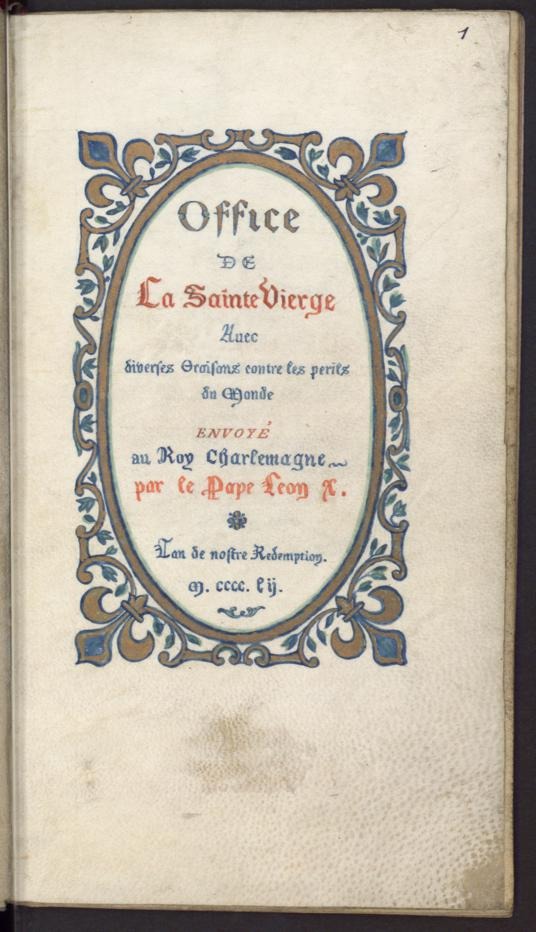 1
Office
DE
La Sainte Vierge
Auec
diverses Oraisons contre les perils
du Monde
ENVOYÉ
au Roy Charlemagne
par le Pape Leon X.
Lan de nostre Redemption.
M. cccc. lij.